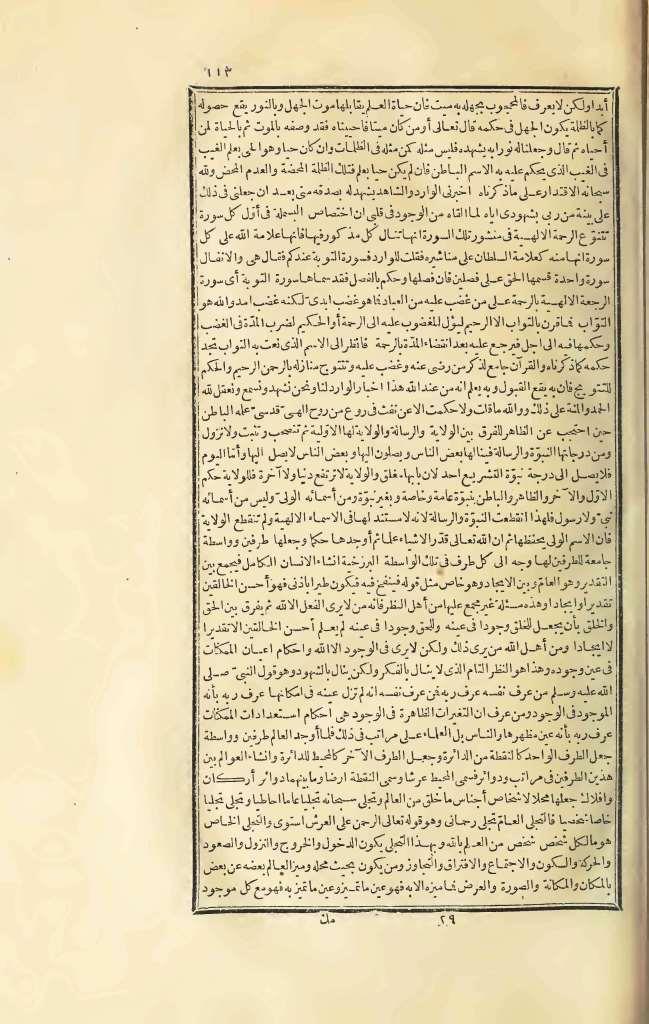 ١١٣
أبدا ولكن لا يعرف فالمحجوب بجهله به ميت فان حياة العلم يقابلها موت الجهل وبالنور يقع حصوله
كما بالظلمة يكون الجهل فى حكمه قال تعالى أو من كان ميتا فاحييناه فقد وصفه بالموت ثم بالحياة لمن
أحياه ثم قال وجعلنا له نورا به يشهده فليس مثله كمن مثله فى الظلمات وان كان حيا وهو الحى بعلم الغيب
فى الغيب الذى يحكم عليه به الاسم الباطن فان لم يكن حيا بعلم فتلك الظلمة المحضة والعدم المحض ولله
سبحانه الاقتدار على ماذكرناه اخبرنى الوارد والشاهد يشهد له بصدقه منى بعد ان جعلنى فى ذلك
على بينة من ربى بشهودى اياه لما القاه من الوجود فى قلبى ان اختصاص البسملة فى أول كل سورة
تتويج الرحمة الالهية فى منشور تلك السورة انها تنال كل مذكور فيها فانها علامة الله على كل
سورة انها منه كعلامة السلطان على مناشيره فقلت للوارد فسورة التوبة عندكم فقال هى والانفال
سورة واحدة قسمها الحق على فصلين فان فصلها وحكم بالفصل فقد سماها سورة التوبة أى سورة
الرجعة الالهية بالرحمة على من غضب عليه من العباد فما هو غضب ابدى لكنه غضب امد والله هو
التواب فما قرن بالتواب الا الرحيم ليؤل المغضوب عليه الى الرحمة أو الحكيم لضرب المدة فى الغضب
وحكمها فيه الى اجل فيرجع عليه بعد انقضاء المدة بالرحمة فانظر الى الاسم الذى نعت به التواب تجد
حكمه كما ذكرناه والقرآن جامع لذكر من رضى عنه وغضب عليه وتتويج منازله بالرحمن الرحيم والحكم
للتتويج فان به يقع القبول وبه يعلم انه من عند الله هذا اخبار الوارد لنا ونحن نشهد ونسمع ونعقل لله
الحمد والمنة على ذلك ووالله ماقلت ولا حكمت الا عن نفث فى روع من روح الهى قدسى علمه الباطن
حين احتجب عن الظاهر للفرق بين الولاية والرسالة والولاية لها الاولية ثم تنصحب وتثبت ولا تزول
ومن درجاتها النبوة والرسالة فينالها بعض الناس ويصلون اليها وبعض الناس لا يصل اليها وأما اليوم
فلا يصل الى درجة نبوة التشريع احد لان بابها مغلق والولاية لا ترتفع دنيا ولا آخرة فللولاية حكم
الاول والآخر والظاهر والباطن بنبوة عامة وخاصة وبغير نبوة ومن أسمائه الولى وليس من أسمائه
نبى ولا رسول فلهذا انقطعت النبوة والرسالة لانه لا مستند لها فى الاسماء الالهية ولم تنقطع الولاية
فان الاسم الولى يحفظها ثم ان الله تعالى قدر الاشياء علما ثم أوجدها حكما وجعلها طرفين وواسطة
جامعة للطرفين لها وجه الى كل طرف فى تلك الواسطة البرزخية انشاء الانسان الكامل فيجمع بين
التقدير وهو العام وبين الايجاد وهو خاص مثل قوله فينفخ فيه فيكون طيرا باذنى فهو أحسن الخالقين
تقديرا وايجادا وهذه مسئلة غير مجمع عليها من أهل النظر فانه من لا يرى الفعل الا لله ثم يفرق بين الحق
والخلق بأن يجعل للخلق وجودا فى عينه وللحق وجودا فى عينه لم يعلم أحسن الخالقين الا تقديرا
لا ايجادا ومن أهل الله من يرى ذلك ولكن لا يرى فى الوجود الا الله واحكام اعيان الممكنات
فى عين وجوده وهذا هو النظر التام الذى لا ينال بالفكر ولكن ينال بالشهود وهو قول النبى صلى
الله عليه وسلم من عرف نفسه عرف ربه فمن عرف نفسه انه لم تزل عينه فى امكانها عرف ربه بأنه
الموجود فى الوجود ومن عرف ان التغيرات الظاهرة فى الوجود هى أحكام استعدادات الممكنات
عرف ربه بأنه عين مظهرها والناس بل العلماء على مراتب فى ذلك فلما أوجد العالم طرفين وواسطة
جعل الطرف الواحد كالنقطة من الدائرة وجعل الطرف الآخر كالمحيط للدائرة وانشاء العوالم بين
هذين الطرفين فى مراتب ودوائر فسمى المحيط عرشا وسمى النقطة ارضا وما بينهما دوائر أركان
وافلاك جعلها محلا لاشخاص أجناس ما خلق من العالم وتجلى سبحانه تجليا عاما احاطيا وتجلى تجليا
خاصا شخصيا فالتجلى العام تجلى رحمانى وهو قوله تعالى الرحمن على العرش استوى والتجلى الخاص
هو ما لكل شخص شخص من العلم بالله وبهذا التجلى يكون الدخول والخروج والنزول والصعود
والحركة والسكون والاجتماع والافتراق والتجاوز ومن يكون بحيث محله وميز العالم بعضه عن بعض
بالمكان والمكانة والصورة والعرض فما ميزه الا به فهو عين ما تميز وعين ما تميز به فهو مع كل موجود
٢٩ مك